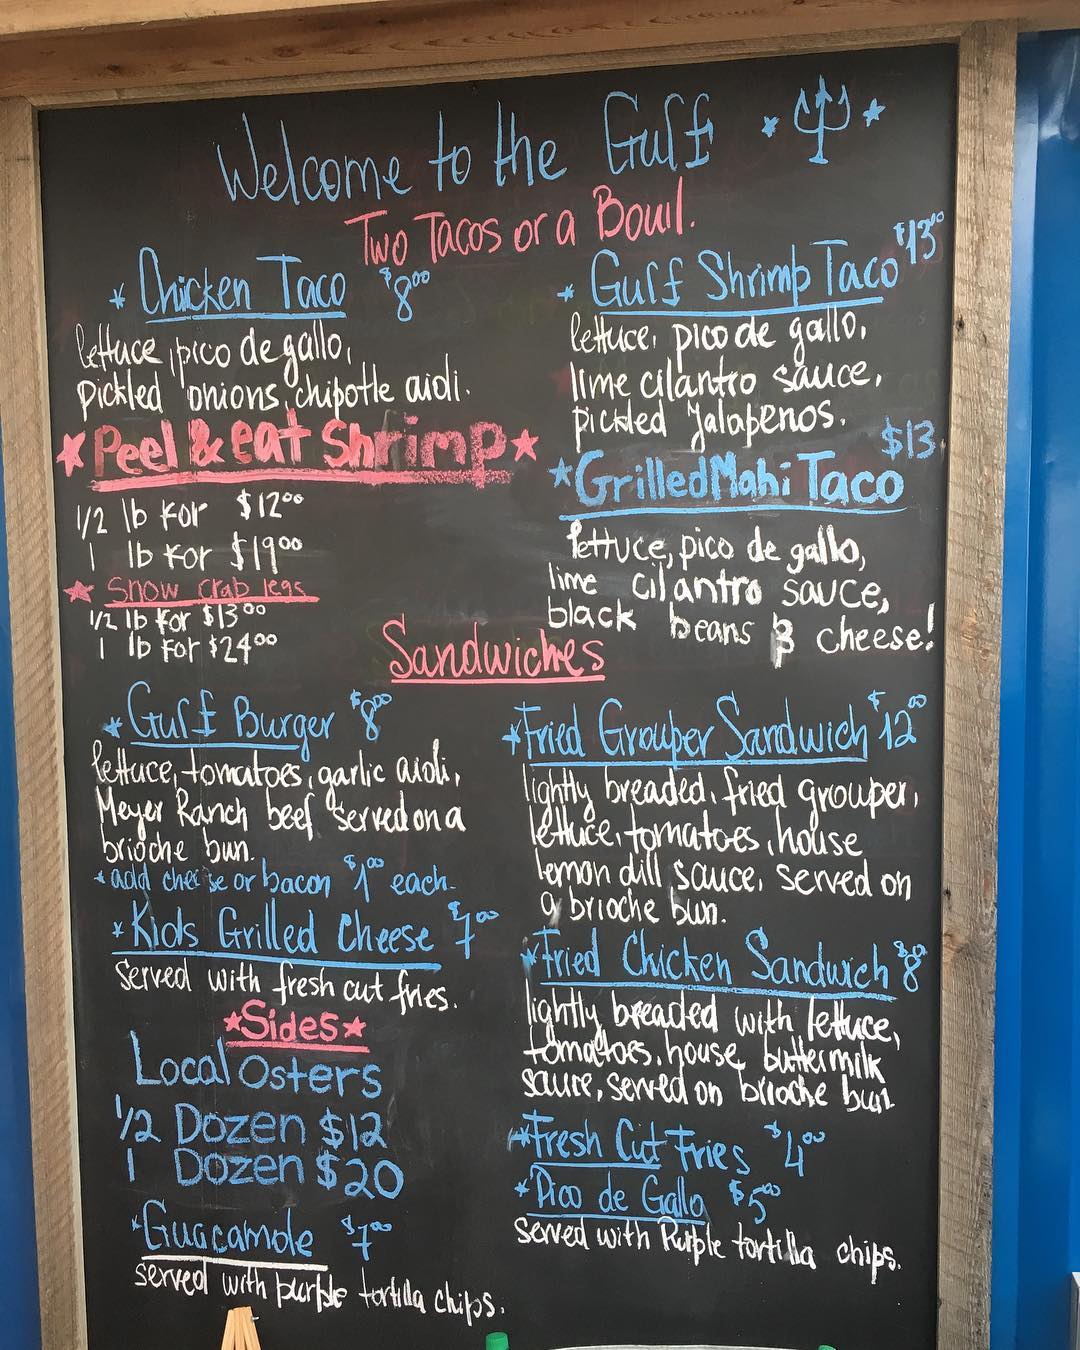 Welcome to the Gulf
Two Tacos or a Bowl.
* Chicken Taco $8.00
lettuce, pico de gallo,
pickled onions, chipotle aioli.
Peel & eat Shrimp
1/2 lb for $12.00
1 lb for $19.00
Snow crab legs
1/2 lb for $13.00
1 lb for $24.00
* Gulf Shrimp Taco $13.00
lettuce, pico de gallo,
lime cilantro sauce,
pickled Jalapenos.
* Grilled Mahi Taco $13
lettuce, pico de gallo,
lime cilantro sauce,
black beans & cheese!
Sandwiches
* Gulf Burger $8.00
lettuce, tomatoes, garlic aioli,
Meyer Ranch beef served on a
brioche bun.
* add cheese or bacon $1.00 each.
* Kids Grilled Cheese $7.00
Served with fresh cut fries.
* Fried Grouper Sandwich $12.00
lightly breaded, fried grouper,
lettuce, tomatoes, house
lemon dill sauce, served on
a brioche bun.
* Fried Chicken Sandwich $8.00
lightly breaded with lettuce,
tomatoes, house buttermilk
sauce, served on brioche bun
Sides
Local Osters
1/2 Dozen $12
1 Dozen $20
* Guacamole $7.00
served with purple tortilla chips.
* Fresh Cut Fries $4.00
* Pico de Gallo $5.00
served with Purple tortilla chips.